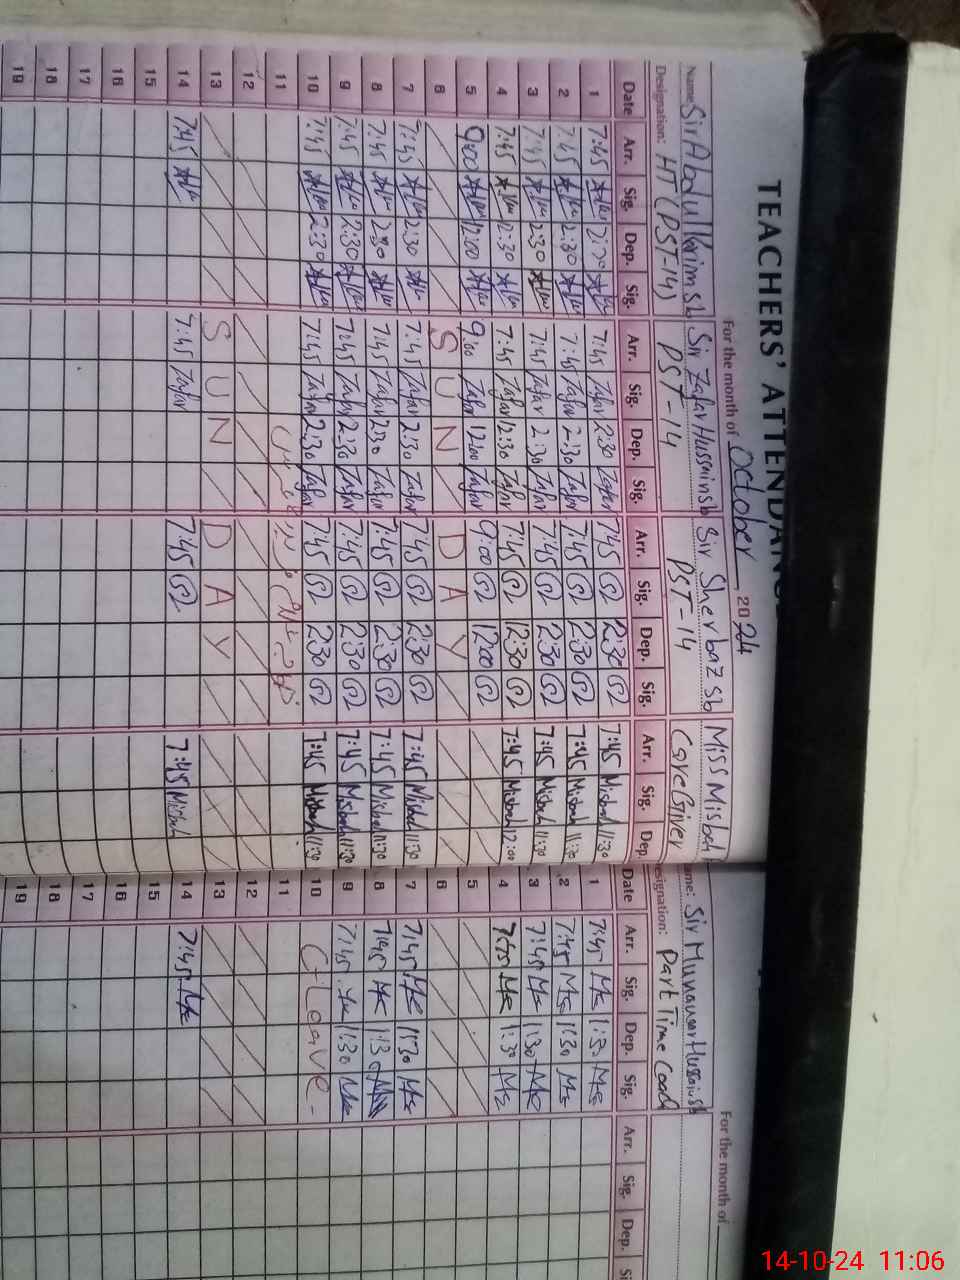 TEACHERS' ATTENDANC
For the month of October 2024
Name: Sir Abdul Karim sb Sir Zafar Hussain sb Sir Sherbaz sb Miss Misbah
Designation: HT (PST-14) PST-14 PST-14 CareGiver
Date Arr. Sig. Dep. Sig. Arr. Sig. Dep. Sig. Arr. Sig. Dep. Sig. Arr. Sig. Dep.
1 7:45 2:30 7:45 Zafar 2:30 Zafar 7:45 2:30 7:45 Misbah 11:30
2 7:45 2:30 7:45 Zafar 2:30 Zafar 7:45 2:30 7:45 Misbah 11:30
3 7:45 2:30 7:45 Zafar 2:30 Zafar 7:45 2:30 7:45 Misbah 11:30
4 7:45 12:30 7:45 Zafar 12:30 Zafar 7:45 12:30 7:45 Misbah 12:00
5 9:00 12:00 9:00 Zafar 12:00 Zafar 9:00 12:00
6 S U N D A Y
7 7:45 2:30 7:45 Zafar 2:30 Zafar 7:45 2:30 7:45 Misbah 11:30
8 7:45 2:30 7:45 Zafar 2:30 Zafar 7:45 2:30 7:45 Misbah 11:30
9 7:45 2:30 7:45 Zafar 2:30 Zafar 7:45 2:30 7:45 Misbah 11:30
10 7:45 2:30 7:45 Zafar 2:30 Zafar 7:45 2:30 7:45 Misbah 11:30
11
12
13 S U N D A Y
14 7:45 7:45 Zafar 7:45 7:45 Misbah
15
16
17
18
19
For the month of
ame: Sir Munawar Hussain sb
esignation: Part Time Coach
Date Arr. Sig. Dep. Sig. Arr. Sig. Dep. Si
1 7:45 1:30
2 7:45 1:30
3 7:45 1:30
4 7:45 1:30
5
6
7 7:45 11:30
8 7:45 1:30
9 7:45 11:30
10 C-Leave-
11
12
13
14 7:45
15
16
17
18
19
14-10-24 11:06